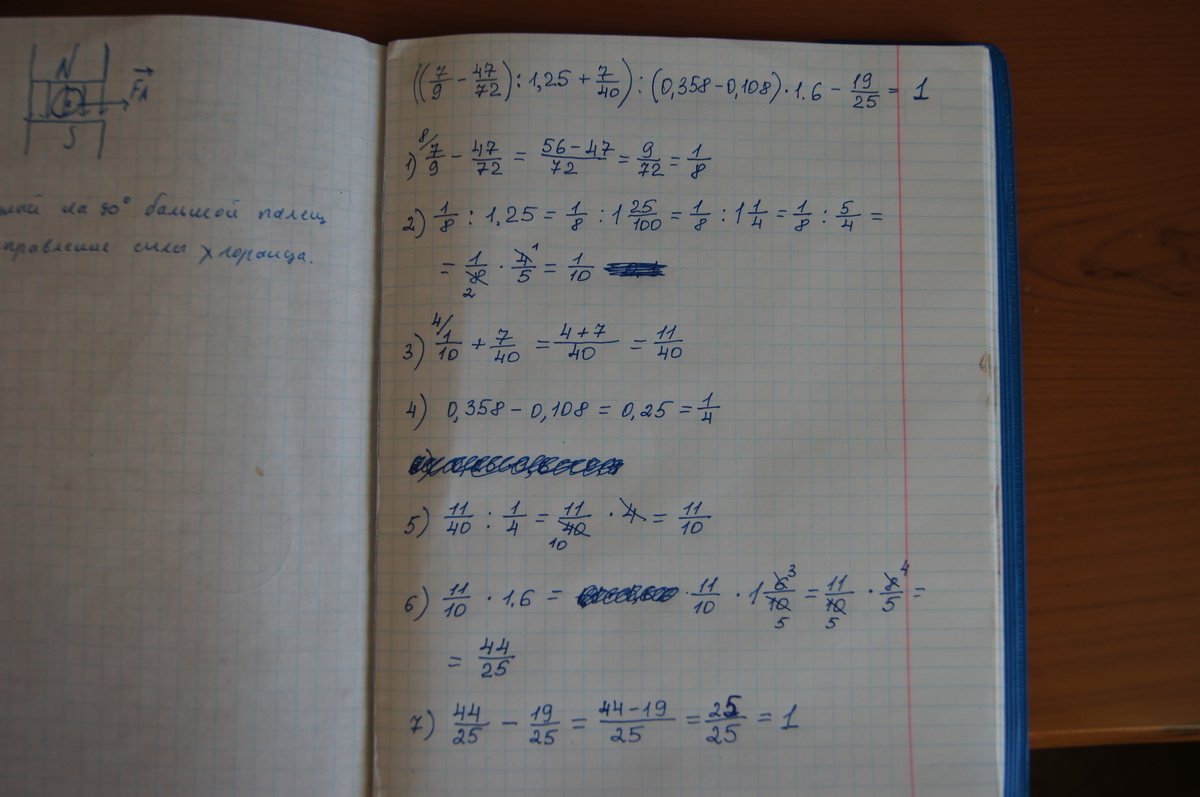 N
F_A
S
на 90° большой палец
силы
((7/9 - 47/72) : 1,25 + 7/40) : (0,358 - 0,108) · 1.6 - 19/25 = 1
1) 8/ 7/9 - 47/72 = (56 - 47)/72 = 9/72 = 1/8
2) 1/8 : 1,25 = 1/8 : 1 25/100 = 1/8 : 1 1/4 = 1/8 : 5/4 =
= 1/8 2 · 4/5 1 = 1/10
3) 4/ 1/10 + 7/40 = (4 + 7)/40 = 11/40
4) 0,358 - 0,108 = 0,25 = 1/4
5) 11/40 : 1/4 = 11/40 10 · 4 = 11/10
6) 11/10 · 1.6 = · 11/10 · 1 6/10 3 5 = 11/10 5 · 8/5 4 =
= 44/25
7) 44/25 - 19/25 = (44 - 19)/25 = 25/25 = 1